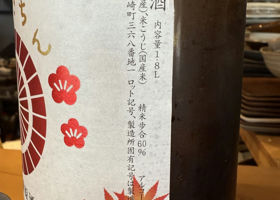 酒
内容量1.8L
産)、米こうじ(国産米)
精米歩合60%
崎町三六八番地一
ロット記号、製造所固有記号は製
ちん